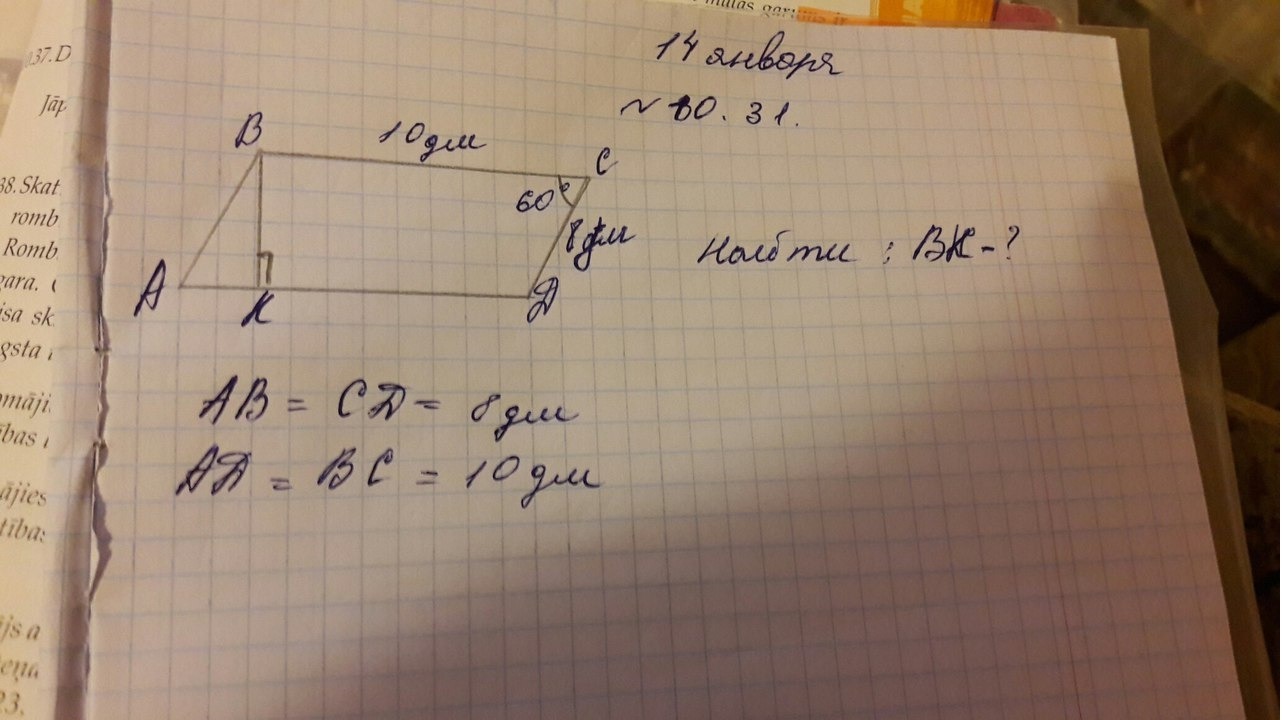 14 января
№ 10. 31.
B
10 дм
C
60°
8 дм
Найти : BK - ?
A
K
D
AB = CD = 8 дм
AD = BC = 10 дм
37. D
Jāp
38. Skat
romb
Romb
gara.
isa sk
gsta
ājies
23.